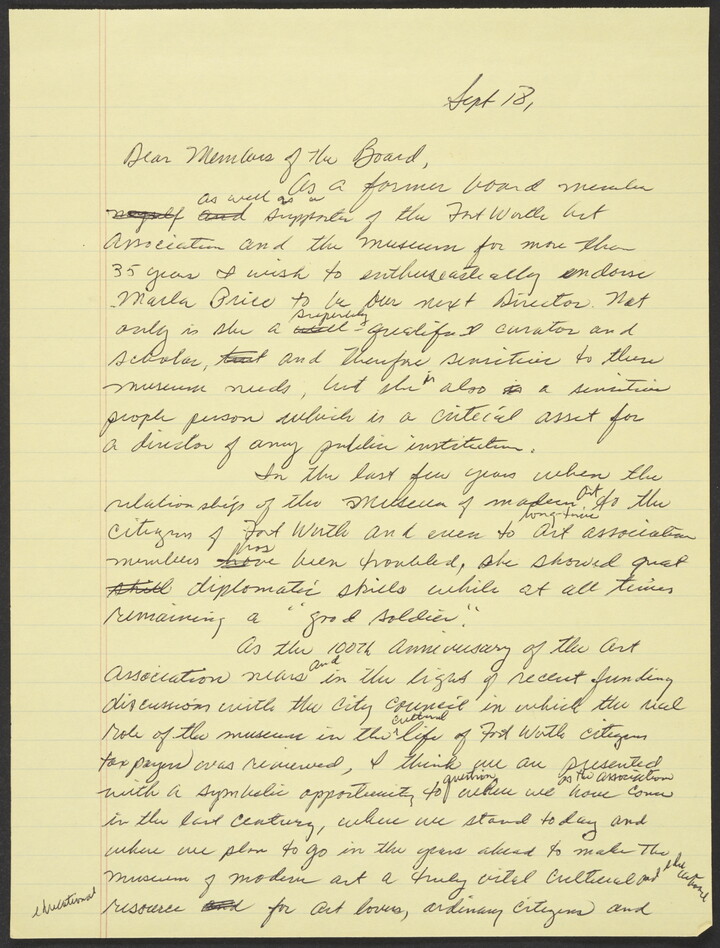 Sept 18,
Dear Members of the Board,
As a former board member
myself and as well as a supporter of the Fort Worth Art
Association and the museum for more than
35 years I wish to enthusiastically endorse
Marla Price to be our next Director. Not
only is she a well superbly qualified curator and
scholar, but and therefore sensitive to these
museum needs, but she is also is a sensitive
people person which is a critical asset for
a director of any public institution.
In the last few years when the
relationships of the Museum of modern Art to the
citizens of Fort Worth and even to long-time Art association
members have has been troubled, she showed great
skill diplomatic skills while at all times
remaining a "good soldier."
As the 100th anniversary of the Art
Association nears and in the light of recent funding
discussions with the City Council in which the real
role of the museum in the cultural life of Fort Worth citizens
taxpayers was reviewed, I think we are presented
with a symbolic opportunity to question where we as the association have come
in the last century, where we stand today and
where we plan to go in the years ahead to make the
museum of modern art a truly vital cultural and
educational
resource and for art lovers, ordinary citizens and